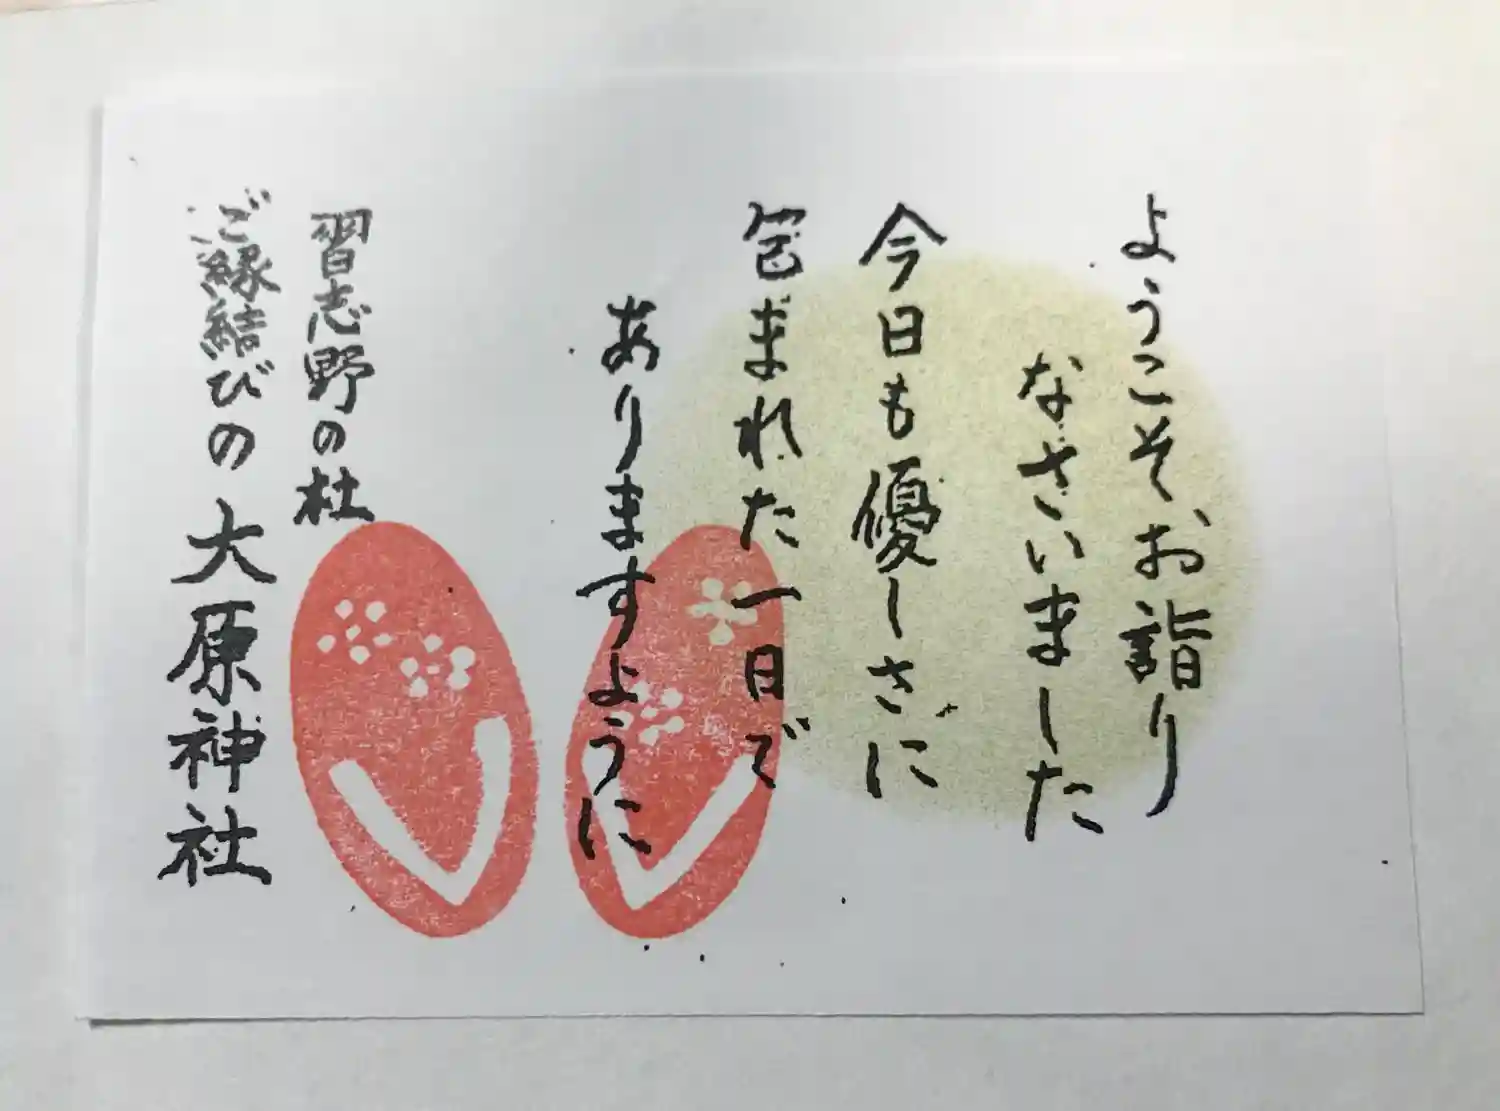 ようこそ、お詣り
なさいました
今日も優しさに
包まれた一日で
ありますように
習志野の杜
ご縁結びの大原神社